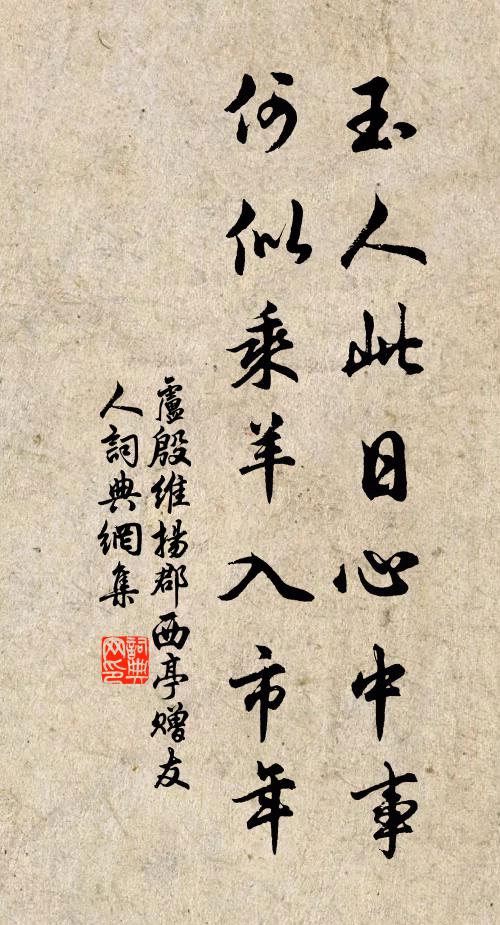 玉人此日心中事
何似乘羊入市年
盧殷維揚郡西亭赠友
人詞典網集
詞典
网印